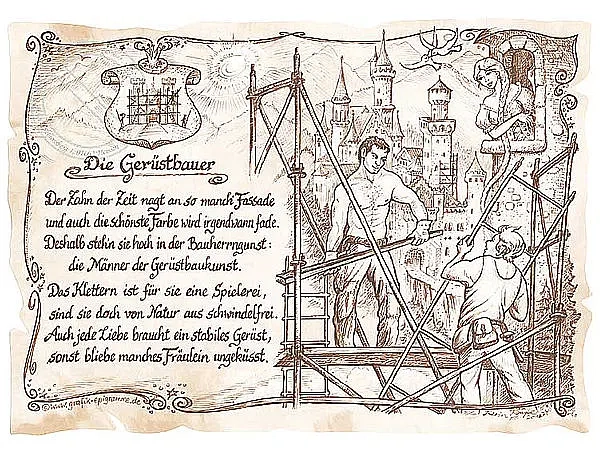 Die Gerüstbauer
Der Zahn der Zeit nagt an so manch Fassade
und auch die schönste Farbe wird irgendwann fade.
Deshalb stehn sie hoch in der Bauherrngunst:
die Männer der Gerüstbaukunst.
Das Klettern ist für sie eine Spielerei,
sind sie doch von Natur aus schwindelfrei.
Auch jede Liebe braucht ein stabiles Gerüst,
sonst bliebe manches Fräulein ungeküsst.
©www.grafik-epigramme.de